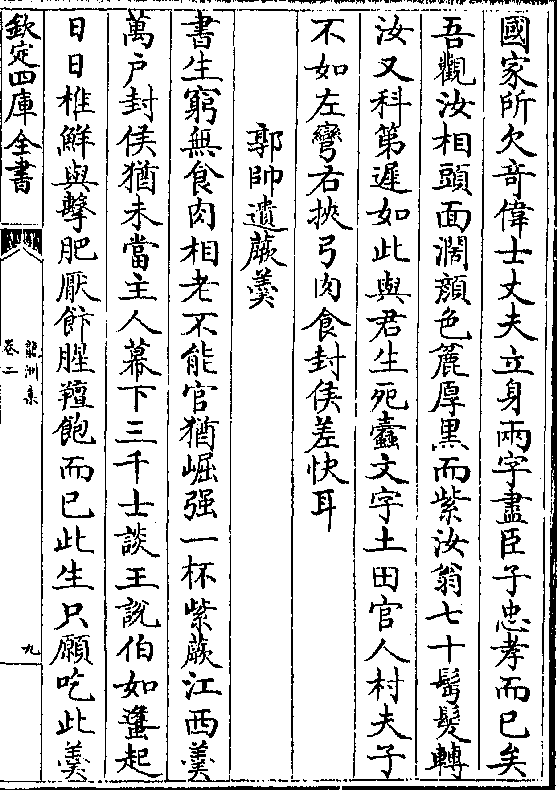 國家所欠竒偉士丈夫立身兩字盡臣子忠孝而已矣
吾觀汝相頭面濶顔色麄厚黒而紫汝翁七十髩髮轉
汝又科第遲如此與君生死蠧文字土田官人村夫子
不如左彎右挾弓肉食封侯差快耳
郭帥遺蕨羮
書生窮無食肉相老不能官猶崛强一杯紫蕨江西羮
萬户封侯猶未當主人幕下三千士談王說伯如蠭起
日日椎鮮與擊肥厭飫腥羶飽而已此生只願吃此羮
欽定四庫全書
龍洲集
卷二
九